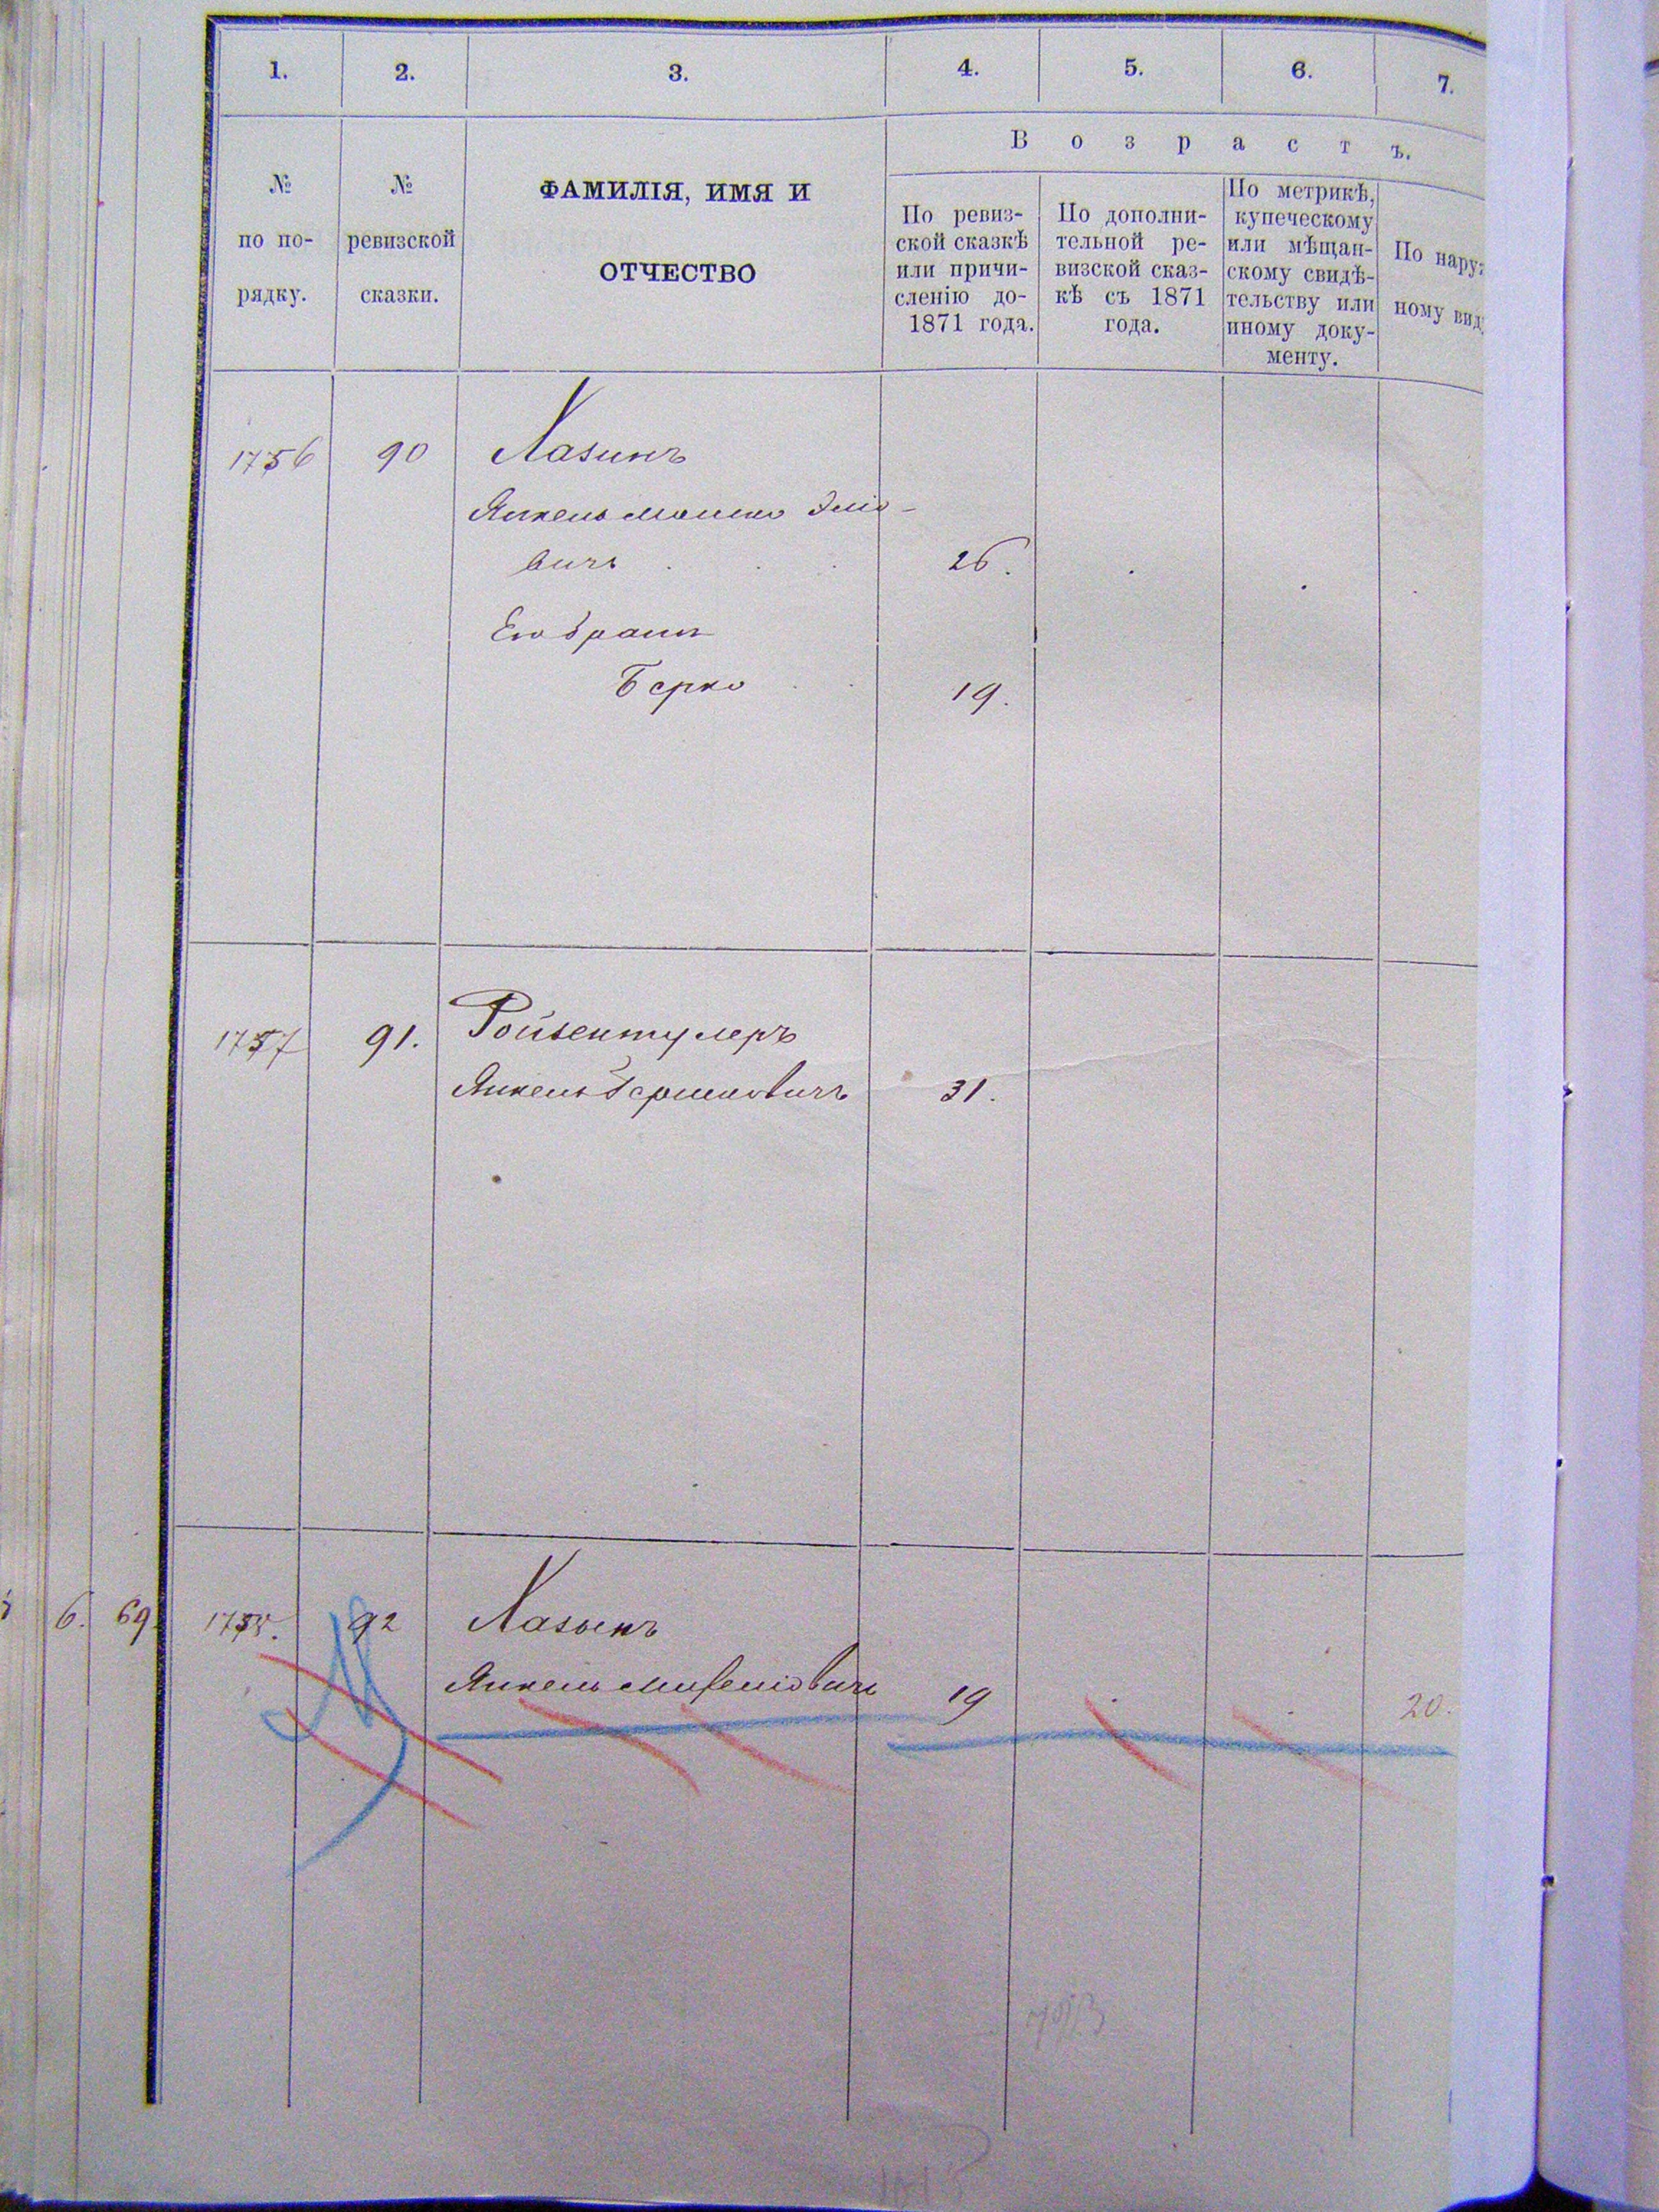 1. 2. 3. 4. 5. 6. 7.
В о з р а с т ъ.
№
по по-
рядку.
№
ревизской
сказки.
ФАМИЛІЯ, ИМЯ И
ОТЧЕСТВО
По ревиз-
ской сказкѣ
или причи-
сленію до-
1871 года.
По дополни-
тельной ре-
визской сказ-
кѣ съ 1871
года.
По метрикѣ,
купеческому
или мѣщан-
скому свидѣ-
тельству или
иному доку-
менту.
По нару
ному вид
1756 90 Хазинъ
Янкель Мошко Элiо-
вичъ 26.
Его братъ
Берко 19.
1757 91. Ройзентулеръ
Янкель Гершковичъ 31.
6. 69. 1758. 92 Хазынъ
Янкель 19 20.